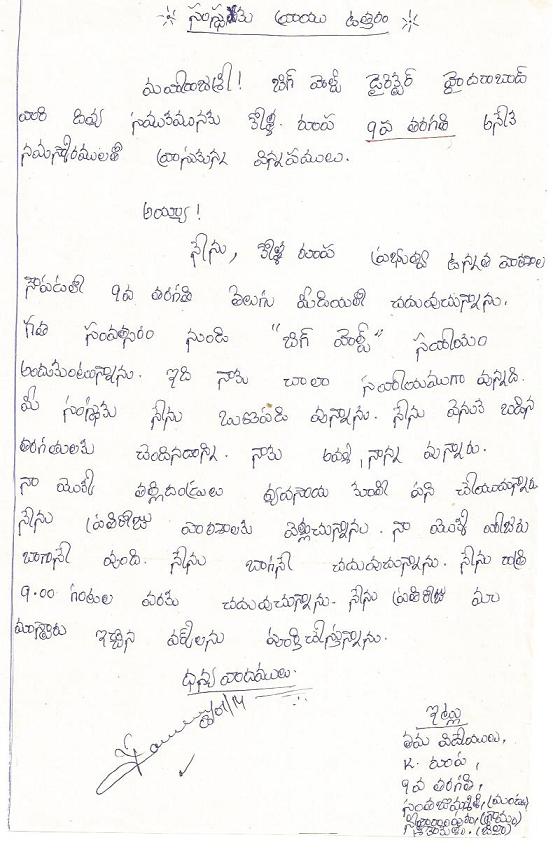 సంస్థకు వ్రాయు ఉత్తరం
మహారాజశ్రీ! బిగ్ హెల్ప్ డైరెక్టర్ హైదరాబాద్
వారి దివ్య సముఖమునకు కొర్ల. రూప 9వ తరగతి అనేక
నమస్కారములతో వ్రాసుకున్న విన్నపములు.
అయ్యా!
నేను, కొర్ల రూప ప్రభుత్వ ఉన్నత పాఠశాల
9వ తరగతి తెలుగు మీడియంలో చదువుచున్నాను.
గత సంవత్సరం నుండి "బిగ్ హెల్ప్" సహాయం
అందుకుంటున్నాను. ఇది నాకు చాలా సహాయముగా వున్నది.
మీ సంస్థకు నేను ఋణపడి వున్నాను. నేను వెనుక బడిన
తరగతులకు చెందినదాన్ని. నాకు అమ్మ, నాన్న వున్నారు.
నా యొక్క తల్లిదండ్రులు వ్యవసాయ కూలి పని చేయుచున్నారు.
నేను ప్రతిరోజు పాఠశాలకు వెళ్ళుచున్నాను. నా యొక్క
బాగానే వుంది. నేను బాగానే చదువుచున్నాను. నేను రాత్రి
9.00 గంటల వరకు చదువుచున్నాను. నేను ప్రతిరోజు మా
మాస్టారు ఇచ్చిన వర్క్‌లను పూర్తిచేస్తున్నాను.
ధన్యవాదములు.
ఇట్లు
తమ విధేయులు,
K. రూప,
9వ తరగతి,
(మండలం)
(గ్రామం)
(జిల్లా)